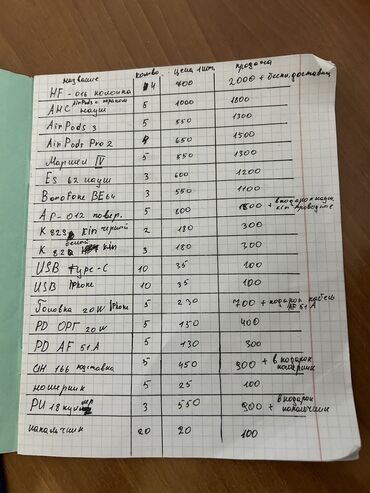 название колво цена 1шт. продажа
HF-016 колонка 4 700 2000 + беспл. доставка
АНС AirPods с экраном науш 5 1000 1800
AirPods 3 5 550 1300
AirPods Pro 2 650 1500
Маршел IV 5 550 1300
Es 62 науш 3 600 1200
Borofone BE64 3 550 1100
AP-012 повер. 5 800 1800 + в подарок науш kin проводные
K 823 kin черной 2 180 300
K 82 белой kin 3 180 300
USB type-C 10 35 100
USB iPhone 10 35 100
Головка 20W iPhone 5 230 700 + подарок кабель AF 51A
PD ОРГ 20W 5 150 400
PD AF 51A 5 130 300
CH 166 подставка 5 450 900 + в подарок номерник
номерник 5 25 100
PU 18 3 550 900 + в подарок напальчник
напальчник 20 20 100